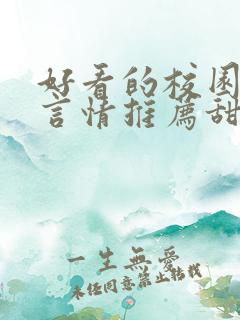 好看的校园
言情推荐甜
一生無愛
未经同意禁止转载